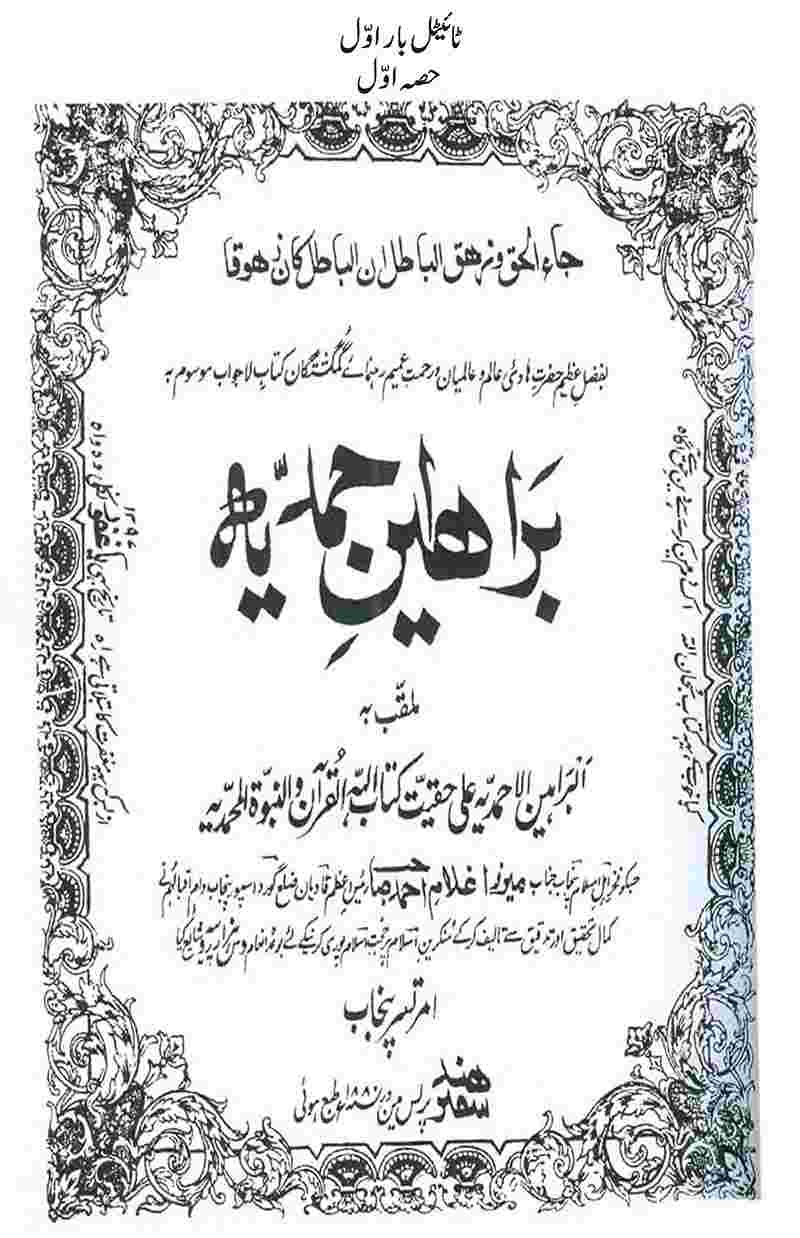 ٹائیٹل بار اوّل
حصہ اوّل
جاء الحق وزهق الباطل ان الباطل كان زهوقا
بفضل عظیم حضرت ہادئ عالم و عالمیان و رحمت عمیم رہنمائے گمگشتگان کتاب لاجواب موسوم بہ
براهین احمدیه
ملقّب بہ
البراهین الاحمدیه علی حقیت کتاب اللّٰه القرآن والنبوة المحمدیه
جسکو فخر اہل اسلام پنجاب جناب میرزا غلام احمد صاحب رئیس اعظم قادیان ضلع گورداسپور پنجاب دام اقبالہم نے
کمال تحقیق اور تدقیق سے تالیف کرکے منکرین اسلام پر حجت اسلام پوری کرنیکے لئے بوعدہ انعام دس ہزار روپیہ شایع کیا
امرتسر پنجاب
سفیر هند
پریس مین در ۱۸۸۰ء طبع ہوئی
سبحان اللہ
تاریخ بھی یا غفور نکلی وہ واہ
۱۲۹۷